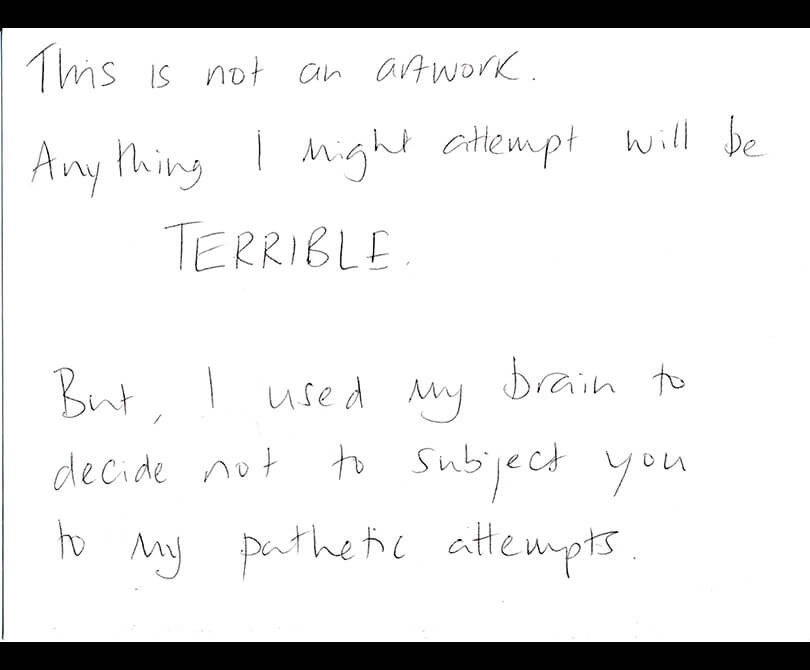 This is not an artwork.
Anything I might attempt will be
TERRIBLE.
But, I used my brain to
decide not to subject you
to my pathetic attempts.